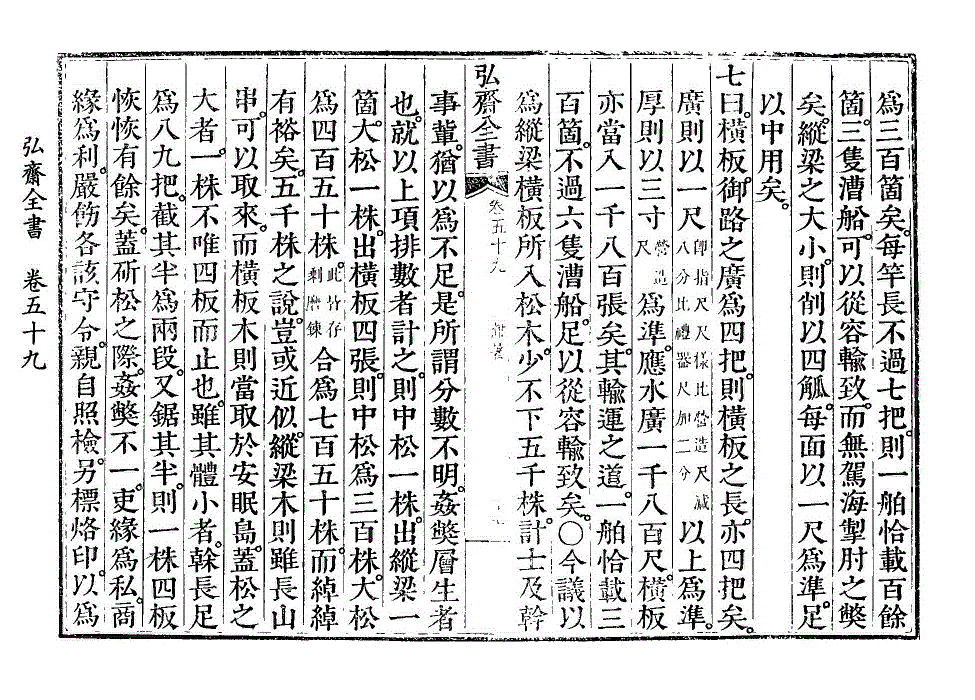 爲三百箇矣。每竿長不過七把。則一舶恰載百餘
箇。三隻漕船。可以從容輸致。而無駕海掣肘之弊
矣。縱梁之大小。則削以四觚。每面以一尺爲準。足
以中用矣。
七曰。橫板。御路之廣爲四把。則橫板之長。亦四把矣。
廣則以一尺卽指尺尺樣比營造尺減八分比禮器尺加二分以上爲準。
厚則以三寸營造尺爲準。應水廣一千八百尺。橫板
亦當入一千八百張矣。其輸運之道。一舶恰載三
百箇。不過六隻漕船。足以從容輸致矣。○今議以
爲縱梁橫板所入松木。少不下五千株。計士及幹
弘齋全書 卷五十九
事輩。猶以爲不足。是所謂分數不明。姦弊層生者
也。就以上項排數者計之。則中松一株。出縱梁一
箇。大松一株。出橫板四張。則中松爲三百株。大松
爲四百五十株。此皆存剩磨鍊合爲七百五十株。而綽綽
有裕矣。五千株之說。豈或近似。縱梁木則雖長山
串。可以取來。而橫板木則當取於安眠島。蓋松之
大者。一株不唯四板而止也。雖其體小者。榦長足
爲八九把。截其半爲兩段。又鋸其半。則一株四板
恢恢有餘矣。蓋斫松之際。姦弊不一。吏緣爲私。商
緣爲利。嚴飭各該守令。親自照檢。另標烙印。以爲
弘齋全書 卷五十九